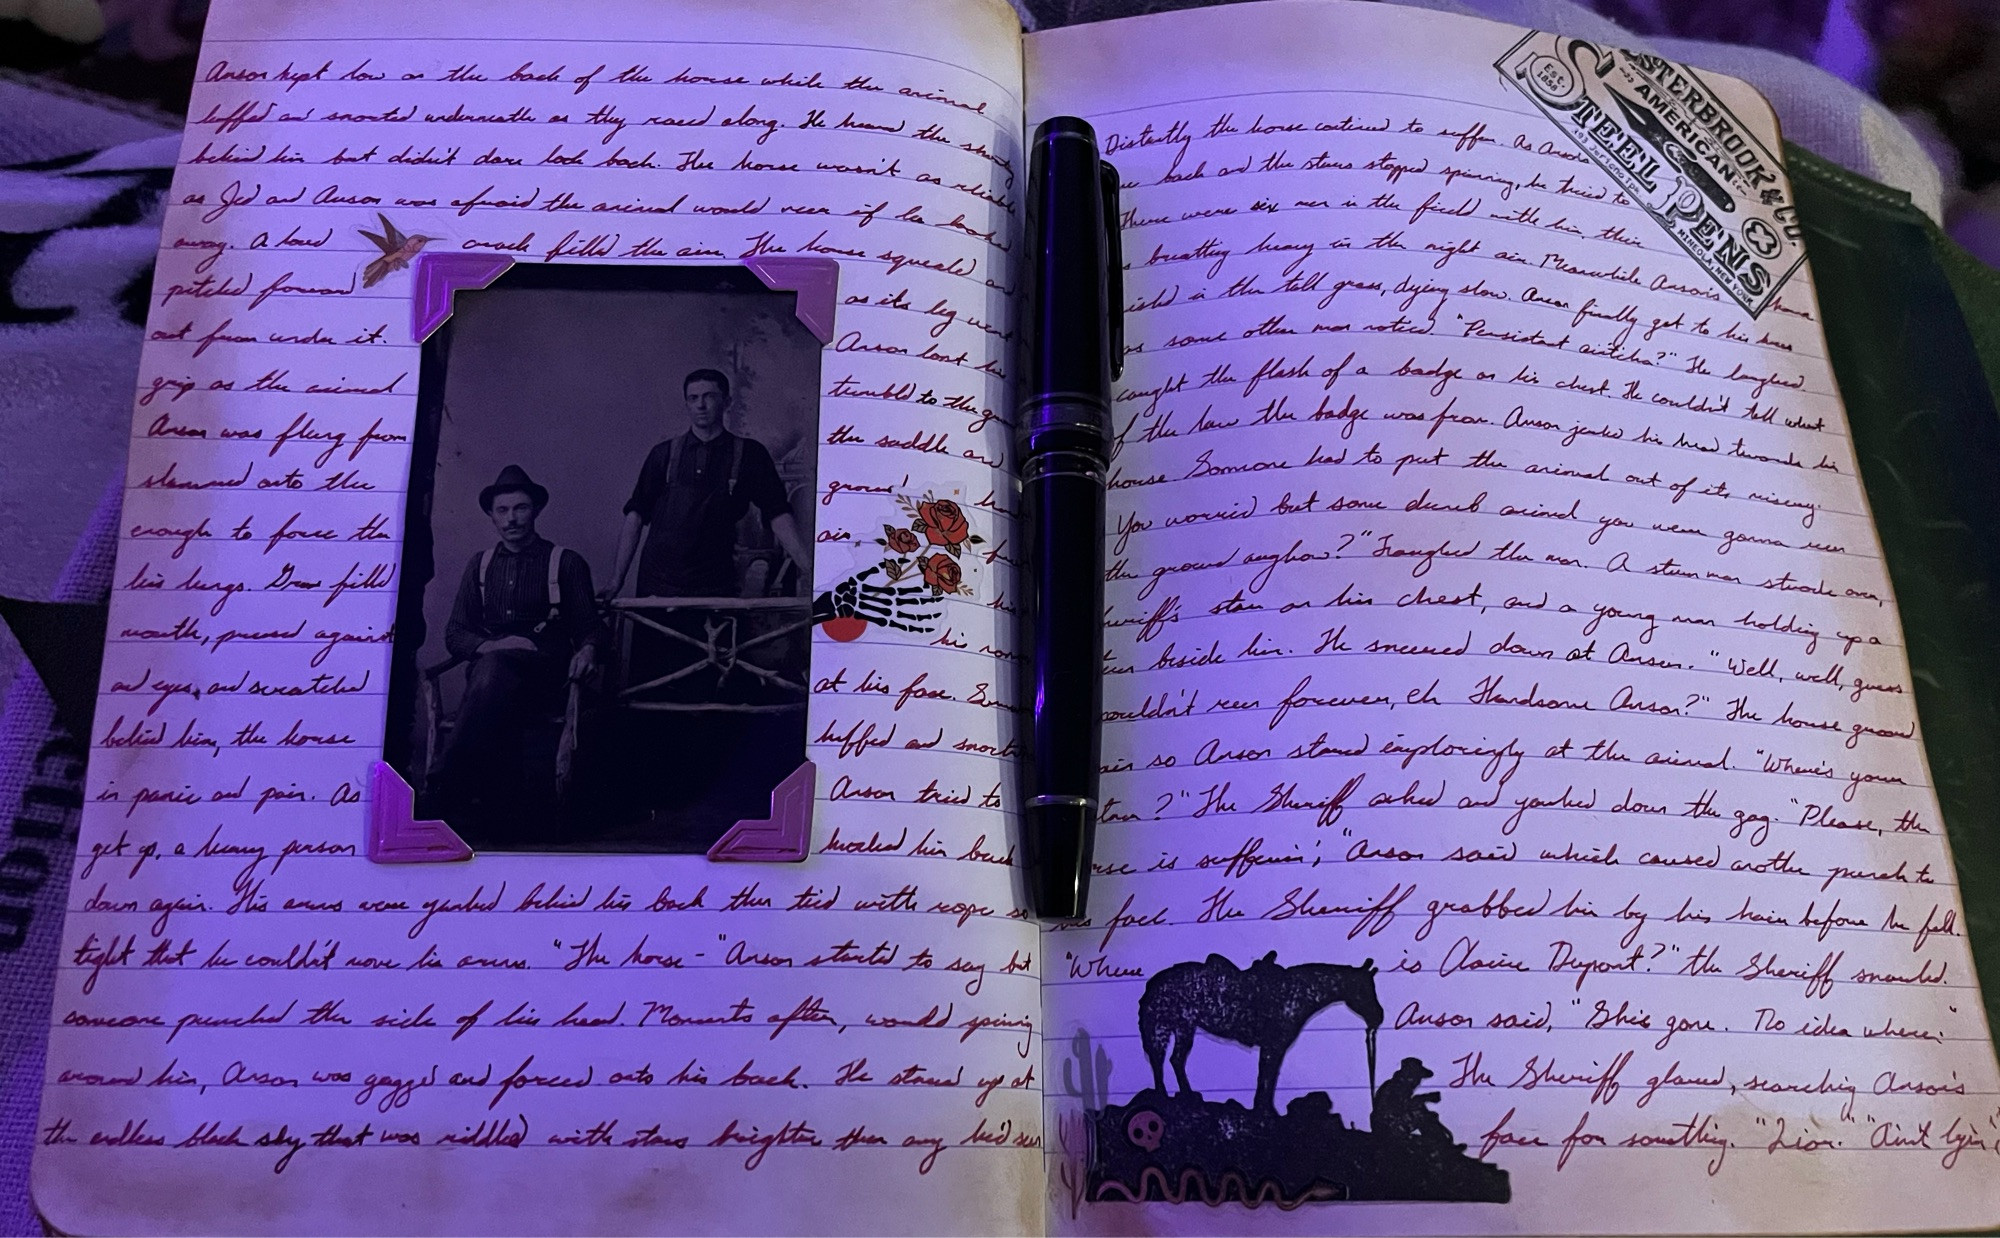 Anson kept low on the back of the horse while the animal
huffed and snorted underneath as they raced along. He heard the
behind him but didn't dare look back. The horse wasn't as reliable
as Jed and Anson was afraid the animal would rear if he looked
away. A loud crack filled the air. The horse squealed and
pitched forward as its leg went
out from under it. Anson lost his
grip as the animal tumbled to the
Anson was flung from the saddle and
slammed onto the ground
enough to force the air
his lungs. Grass filled his
mouth, pressed against his
and eyes, and scratched at his face.
behind him, the horse huffed and snorted
in panic and pain. As Anson tried to
get up, a heavy person knocked him back
down again. His arms were yanked behind his back then tied with rope so
tight that he couldn't move his arms. "The horse - " Anson started to say but
someone punched the side of his head. Moments after, world spinning
around him, Anson was gagged and forced onto his back. He stared up at
the endless black sky that was riddled with stars brighter than any he'd seen
Distantly the horse continued to suffer. As Anson
back and the stars stopped spinning, he tried to
There were six men in the field with him, their
breathing heavy in the night air. Meanwhile Anson's horse
in the tall grass, dying slow. Anson finally got to his knees
as some other man noticed. "Persistent ain'tcha?" He laughed.
caught the flash of a badge on his chest. He couldn't tell what
of the law the badge was from. Anson jerked his head towards his
horse. Someone had to put the animal out of its misery.
You worried bout some dumb animal you were gonna run
the ground anyhow?" the man. A stern man strode over,
Sheriff's star on his chest, and a young man holding up a
beside him. He sneered down at Anson. "Well, well, guess
couldn't run forever, eh Handsome Anson?" The horse groaned
so Anson stared imploringly at the animal. "Where's your
?" The Sheriff asked and yanked down the gag. "Please, the
is sufferin'," Anson said which caused another punch to
his face. The Sheriff grabbed him by his hair before he fell.
"Where is Claire Dupont?" the Sheriff snarled.
Anson said, "She's gone. No idea where."
The Sheriff glared, searching Anson's
face for something. "Liar." "Ain't lyin'
Est. 1858
ESTERBROOK & CO.
AMERICAN
STEEL PENS
MINEOLA, NEW YORK